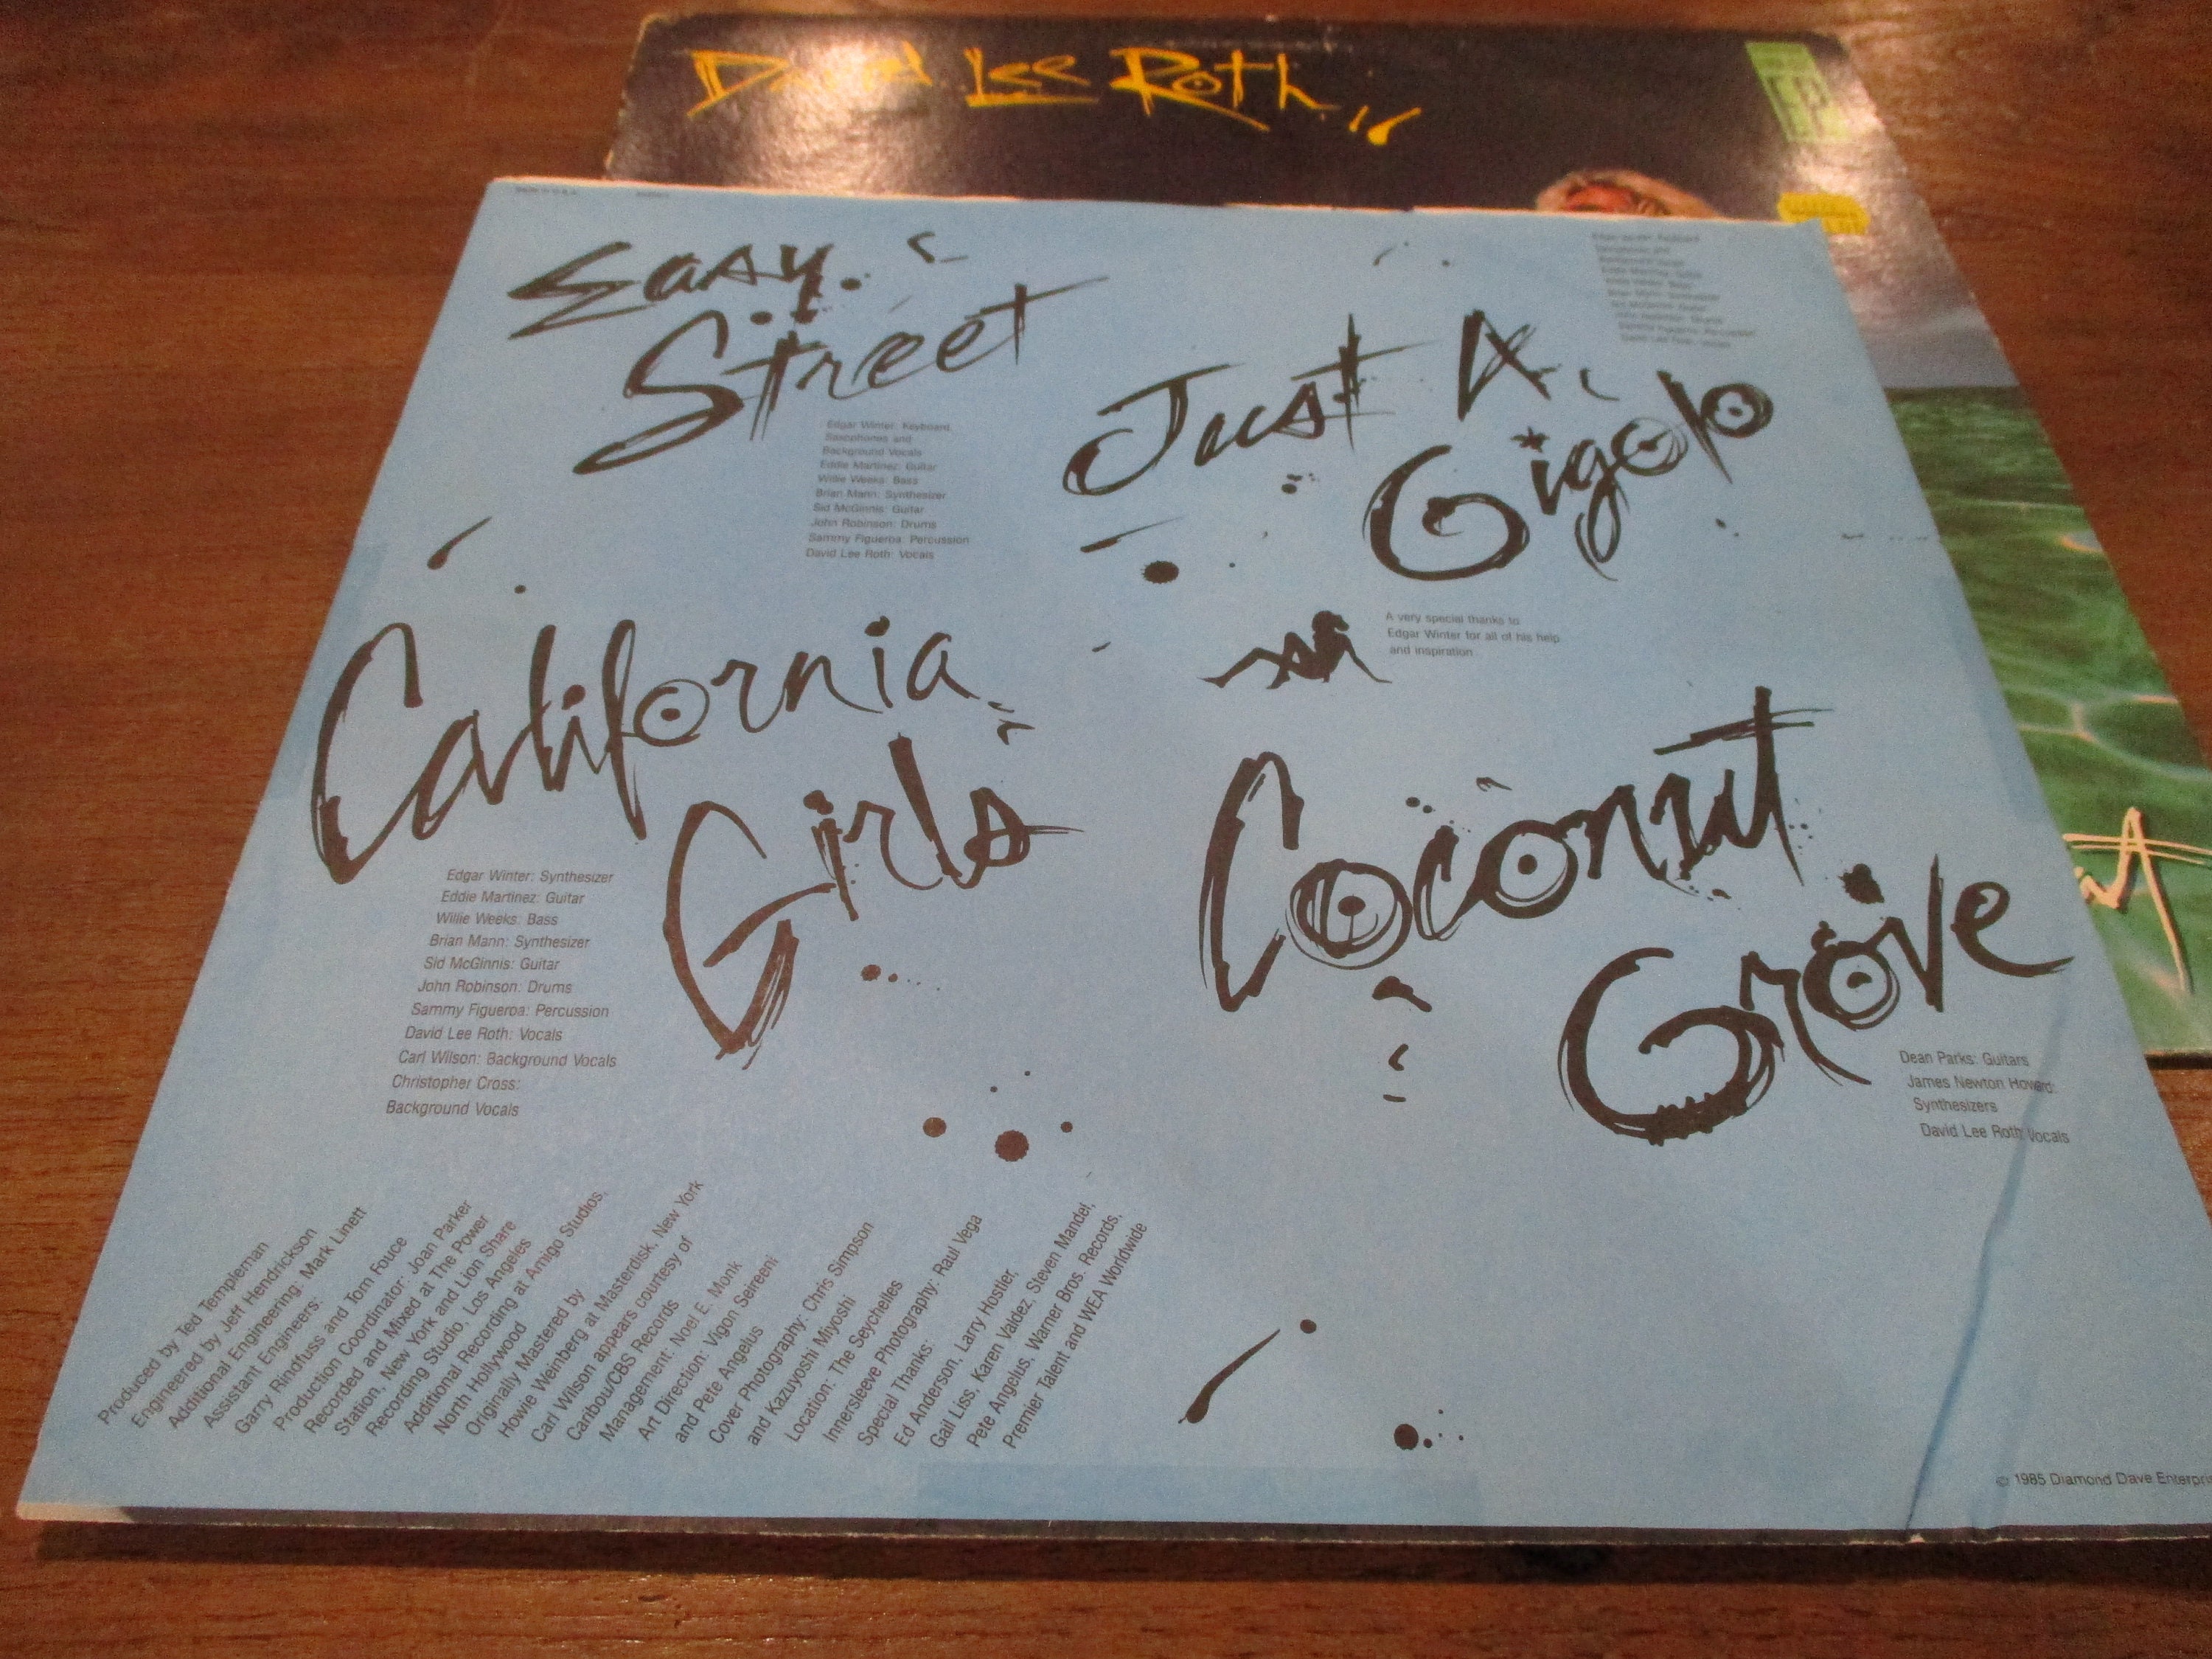 David Lee Roth
LP
Easy
Street
Edgar Winter: Keyboard,
Saxophones and
Background Vocals
Eddie Martinez: Guitar
Willie Weeks: Bass
Brian Mann: Synthesizer
Sid McGinnis: Guitar
John Robinson: Drums
Sammy Figueroa: Percussion
David Lee Roth: Vocals
Just A
Gigolo
Edgar Winter: Keyboard,
Saxophones and
Background Vocals
Eddie Martinez: Guitar
Willie Weeks: Bass
Brian Mann: Synthesizer
Sid McGinnis: Guitar
John Robinson: Drums
Sammy Figueroa: Percussion
David Lee Roth: Vocals
A very special thanks to
Edgar Winter for all of his help
and inspiration
California
Girls
Edgar Winter: Synthesizer
Eddie Martinez: Guitar
Willie Weeks: Bass
Brian Mann: Synthesizer
Sid McGinnis: Guitar
John Robinson: Drums
Sammy Figueroa: Percussion
David Lee Roth: Vocals
Carl Wilson: Background Vocals
Christopher Cross:
Background Vocals
Coconut
Grove
Dean Parks: Guitars
James Newton Howard:
Synthesizers
David Lee Roth: Vocals
Produced by Ted Templeman
Engineered by Jeff Hendrickson
Additional Engineering: Mark Linett
Assistant Engineers:
Garry Rindfuss and Tom Fouce
Production Coordinator: Joan Parker
Recorded and Mixed at The Power
Station, New York and Lion Share
Recording Studio, Los Angeles
Additional Recording at Amigo Studios,
North Hollywood
Originally Mastered by
Howie Weinberg at Masterdisk, New York
Carl Wilson appears courtesy of
Caribou/CBS Records
Management: Noel E. Monk
Art Direction: Vigon Seireeni
and Pete Angelus
Cover Photography: Chris Simpson
and Kazuyoshi Miyoshi
Location: The Seychelles
Innersleeve Photography: Raul Vega
Special Thanks:
Ed Anderson, Larry Hostler,
Gail Liss, Karen Valdez, Steven Mandel,
Pete Angelus, Warner Bros. Records,
Premier Talent and WEA Worldwide
© 1985 Diamond Dave Enterpri